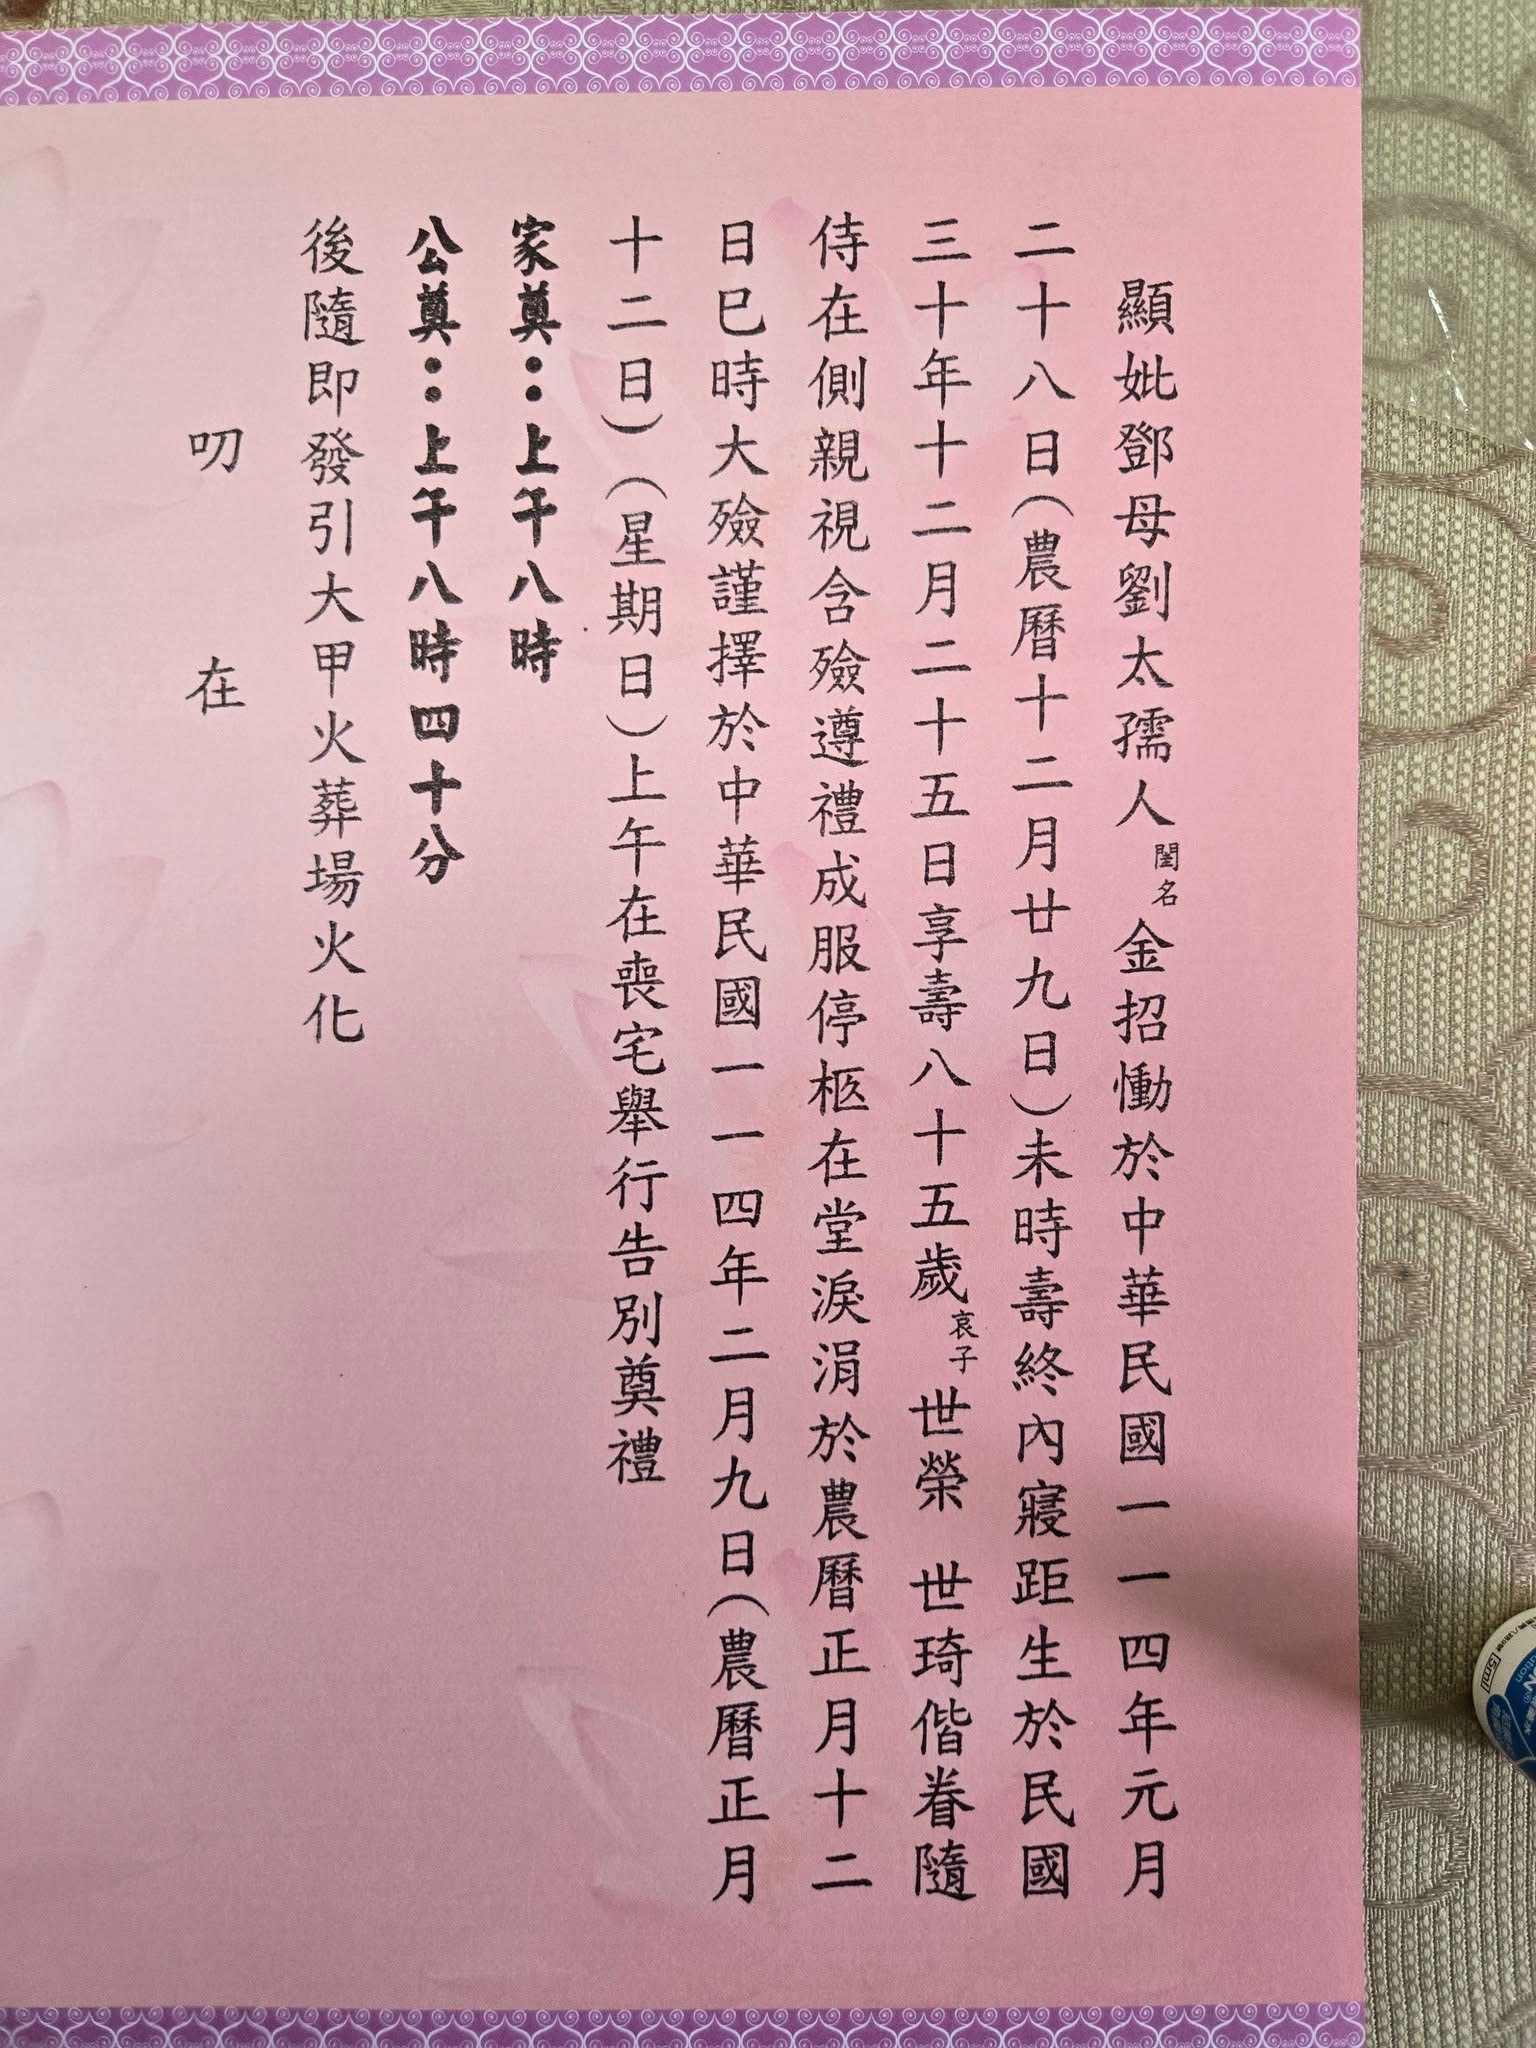 顯妣鄧母劉太孺人閨名金招慟於中華民國一一四年元月
二十八日(農曆十二月廿九日)未時壽終內寢距生於民國
三十年十二月二十五日享壽八十五歲哀子世榮 世琦偕眷隨
侍在側親視含殮遵禮成服停柩在堂淚涓於農曆正月十二
日巳時大殮謹擇於中華民國一一四年二月九日(農曆正月
十二日)(星期日)上午在喪宅舉行告別奠禮
家奠：上午八時
公奠：上午八時四十分
後隨即發引大甲火葬場火化
叨 在
5ml